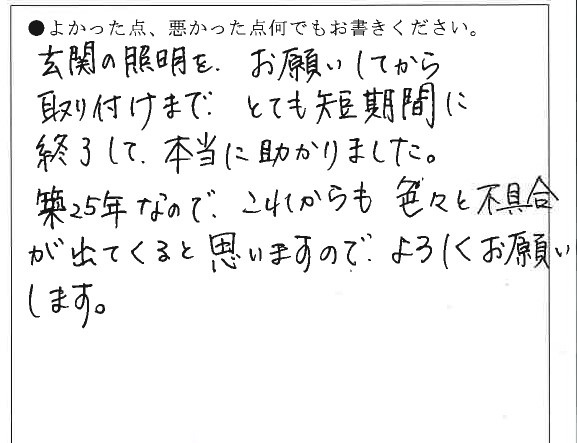 ●よかった点、悪かった点何でもお書きください。
玄関の照明を、お願いしてから
取り付けまで、とても短期間に
終了して、本当に助かりました。
築25年なので、これからも色々と不具合
が出てくると思いますので、よろしくお願い
します。